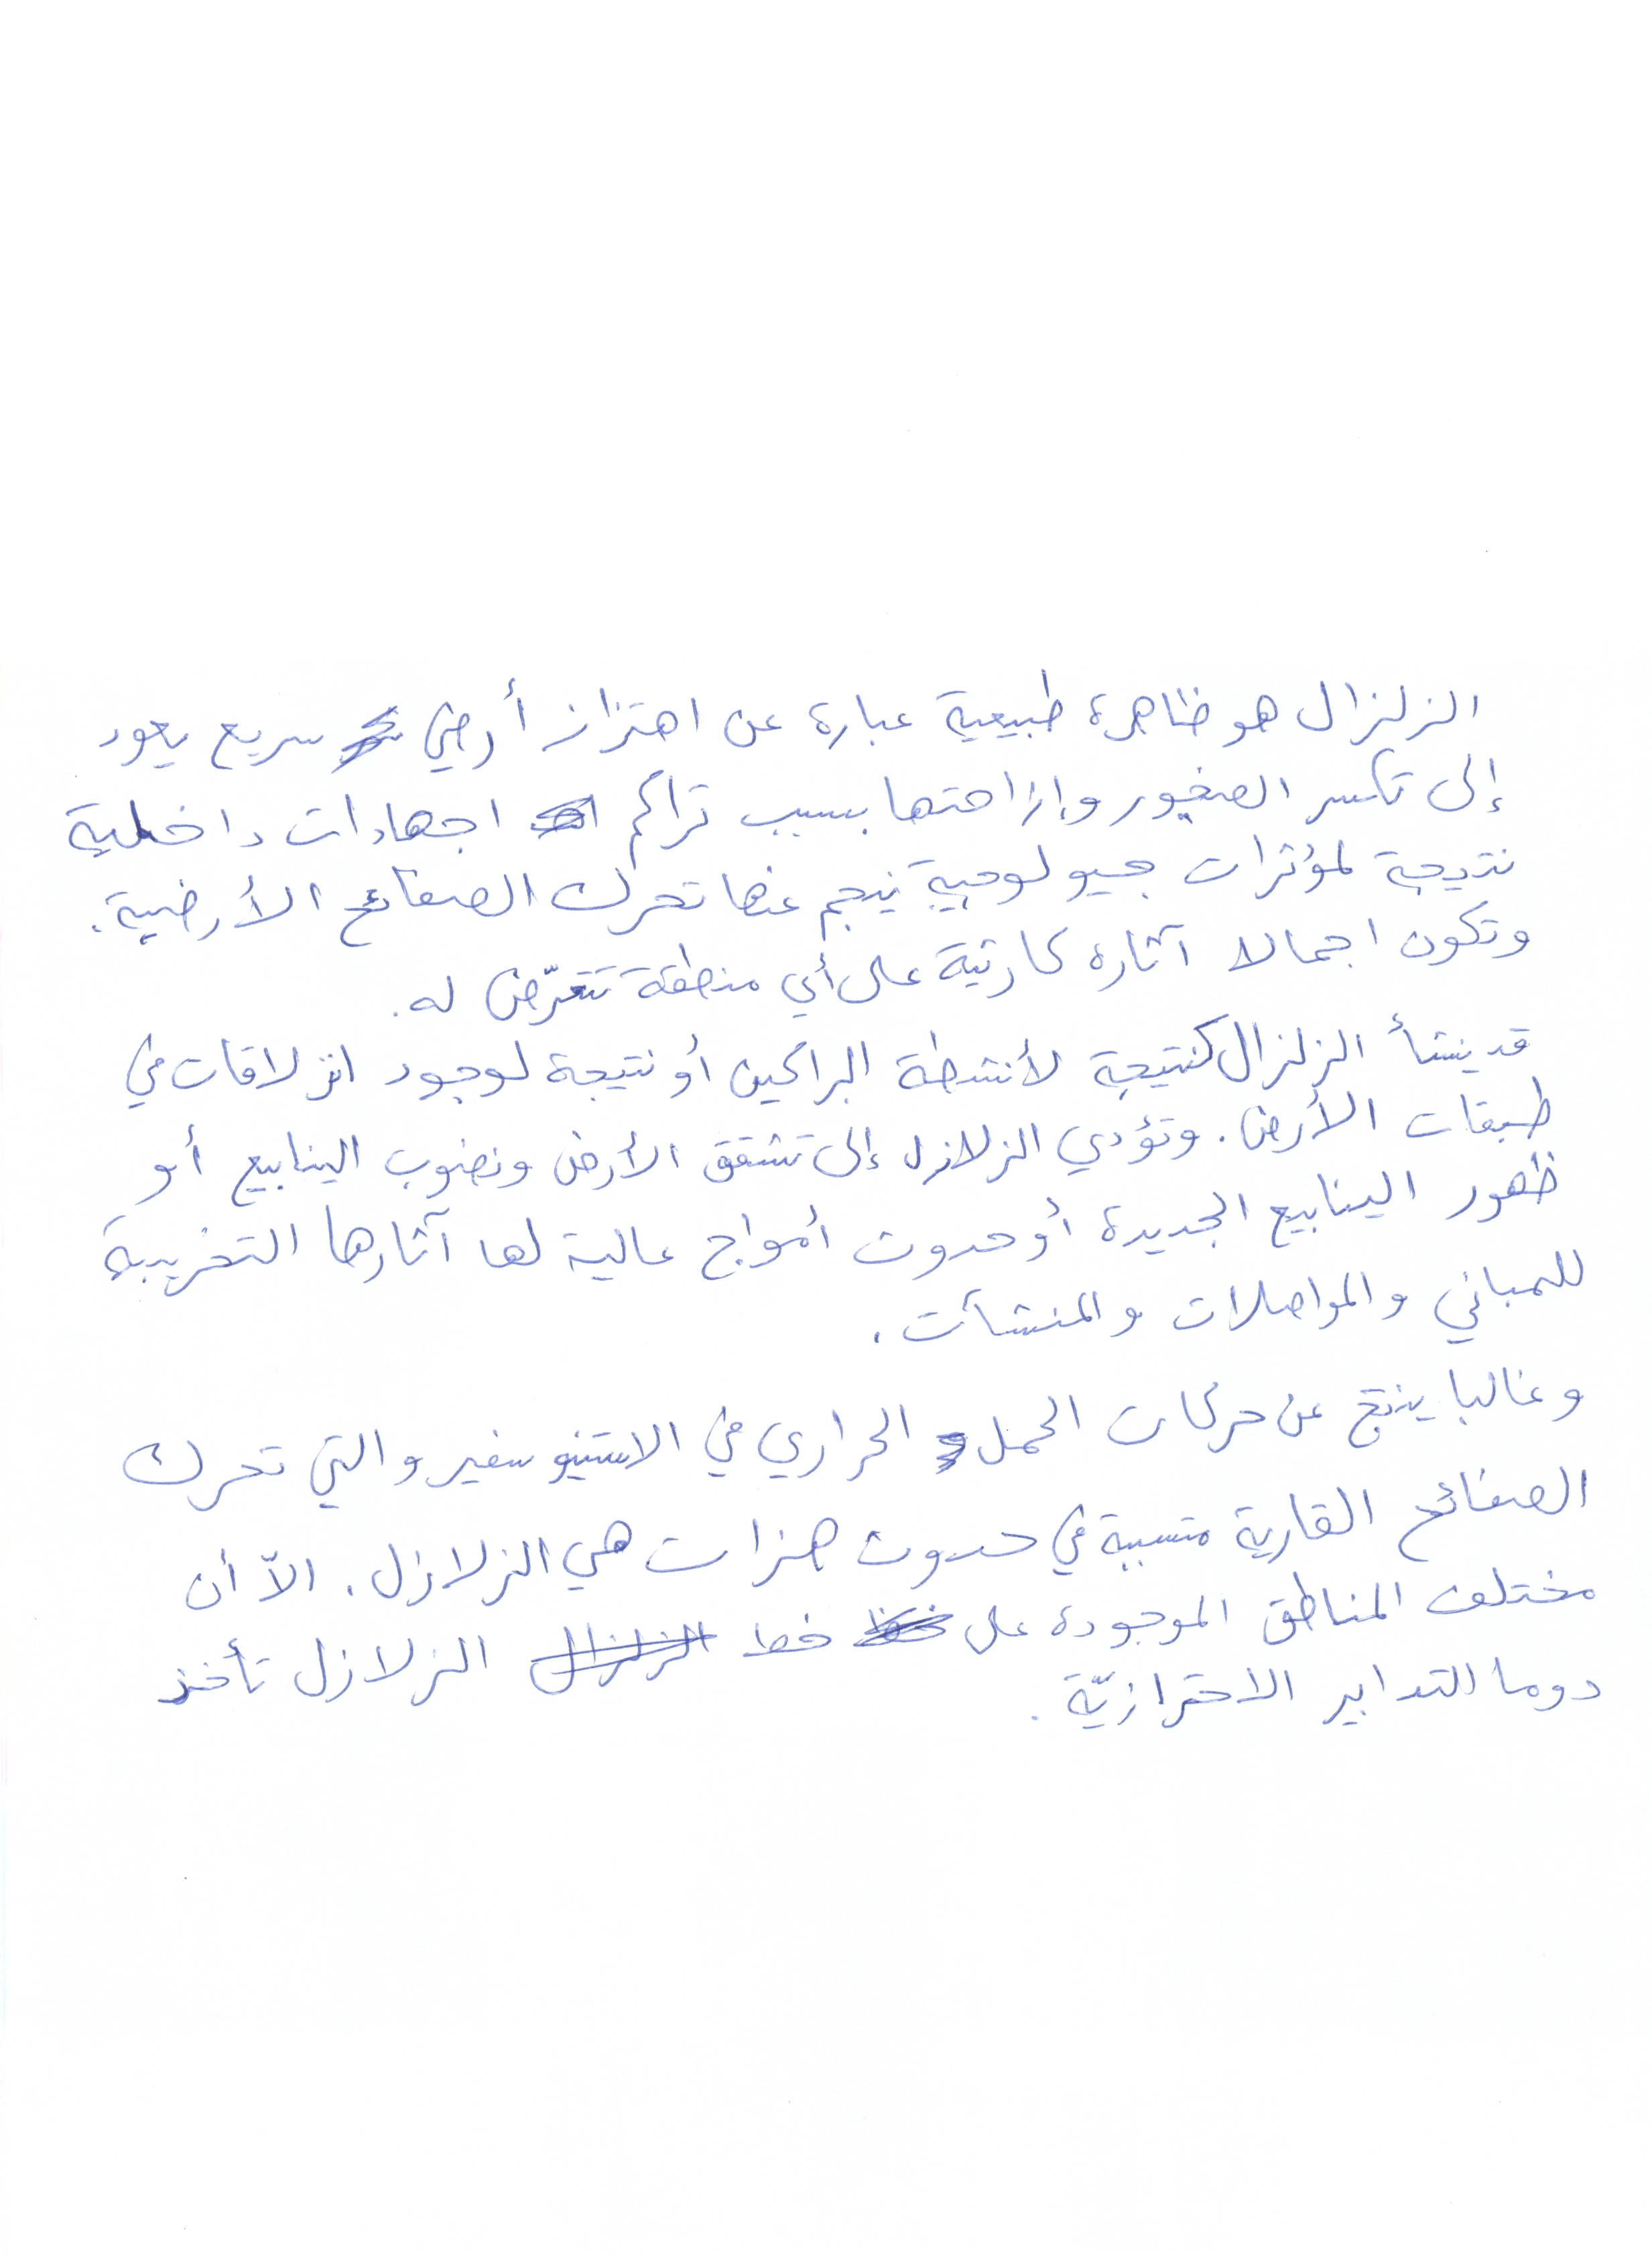 الزلزال هو ظاهرة طبيعية عبارة عن اهتزاز أرضي سريع يعود
إلى تكسر الصخور وإزاحتها بسبب تراكم اجهادات داخلية
نتيجة لمؤثرات جيولوجية ينجم عنها تحرك الصفائح الأرضية.
وتكون اجمالا آثاره كارثية على أي منطقة تتعرّض له.
قد ينشأ الزلزال كنتيجة لأنشطة البراكين أو نتيجة لوجود انزلاقات في
طبقات الأرض. وتؤدي الزلازل إلى تشقق الأرض ونضوب الينابيع أو
ظهور الينابيع الجديدة أو حدوث أمواج عالية لها آثارها التخريبية
للمباني والمواصلات والمنشآت.
وغالبا ينتج عن حركات الحمل الحراري في الاستنيوسفير والتي تحرك
الصفائح القارية متسببة في حدوث هزات هي الزلازل. الاّ أن
مختلف المناطق الموجودة على خط الزلازل تأخذ
دوما التدابير الاحترازيّة.